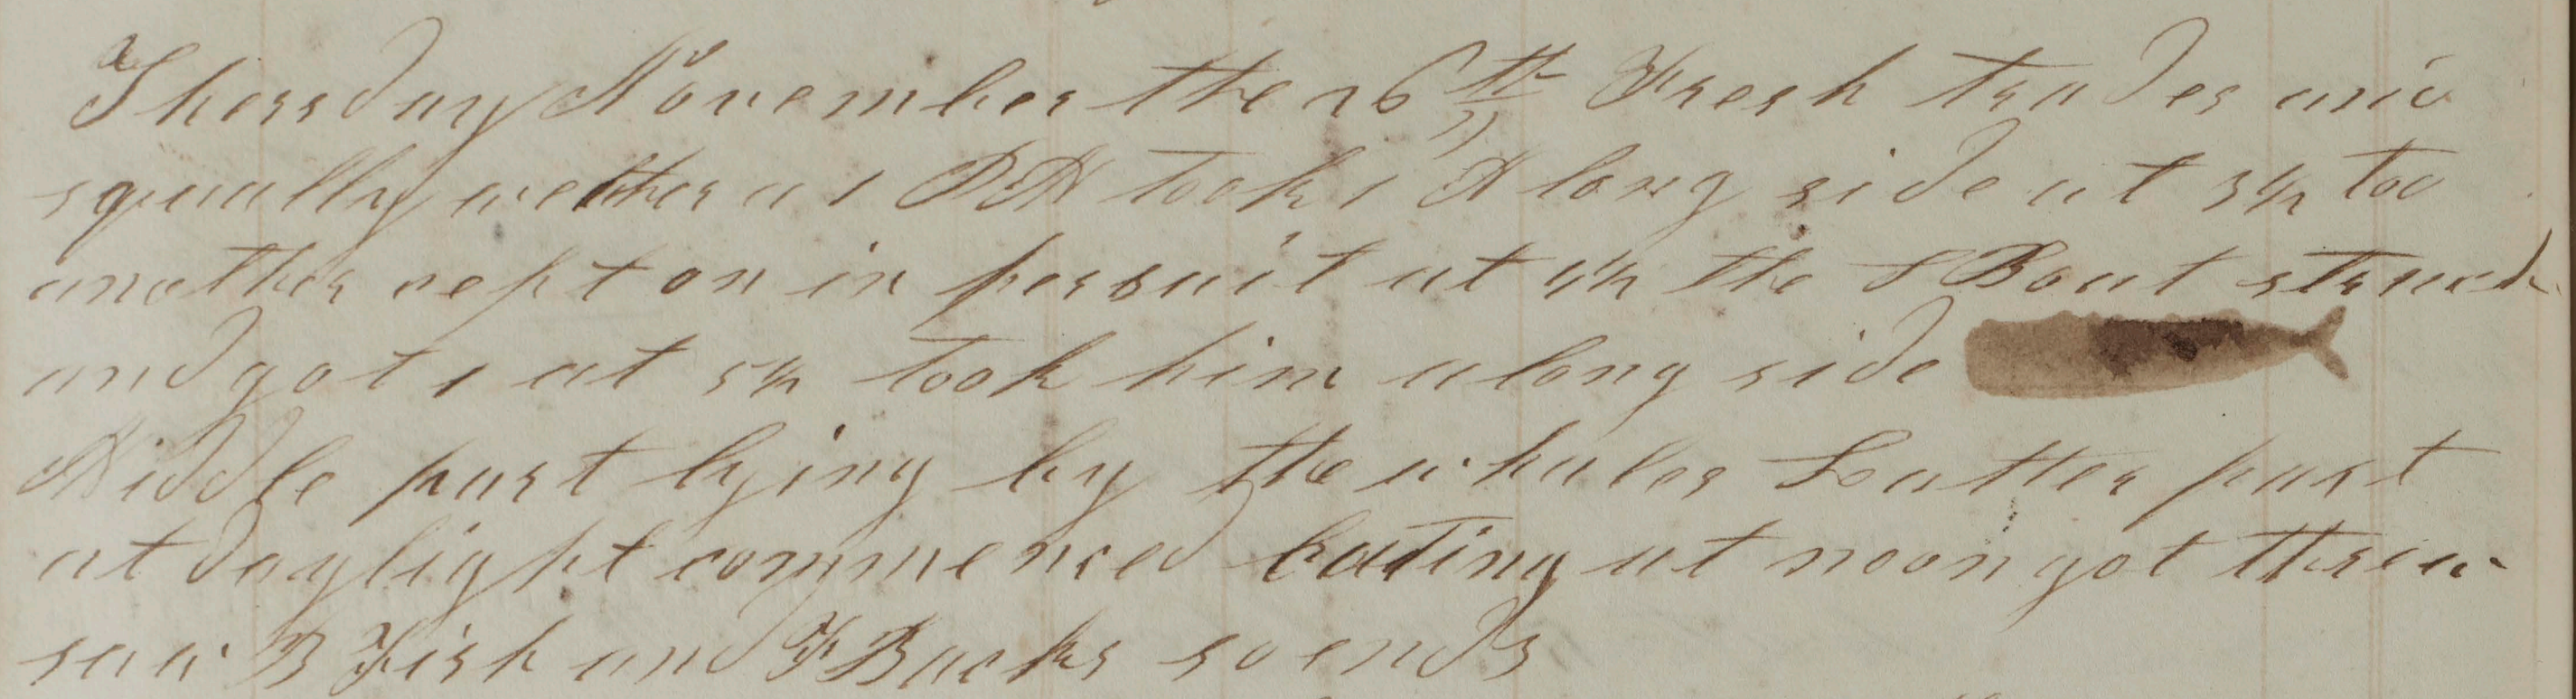 Thersday November the 26th Fresh trades and
squally wether at 1 PM took 1 A long side at 3h too
another cept on in persuit at 4h the S Boat struck
and got 1 at 5h took him along side
Middle part lying by the whales Latter part
at daylight commenced cuting at noon got threw
saw B Fish and F Backs so ends